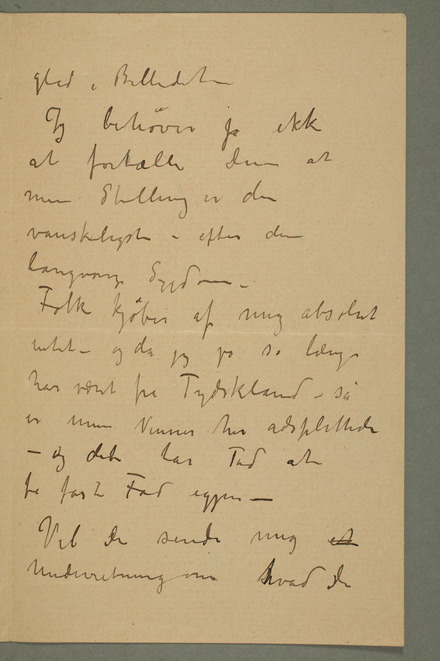 glad i Billedet –
Jeg behøver jo ikke
at fortælle Dem at
min Stilling er den
vanskeligste – efter den
langvarige Sygdom –
Folk kjøber af mig absolut
intet – og da jeg jo så længe
har vært fra Tydskland – så
er mine Venner her adsplittede
– og det tar Tid at
få fast Fod igjen –
Vil De sende mig et
Underretning om hvad De